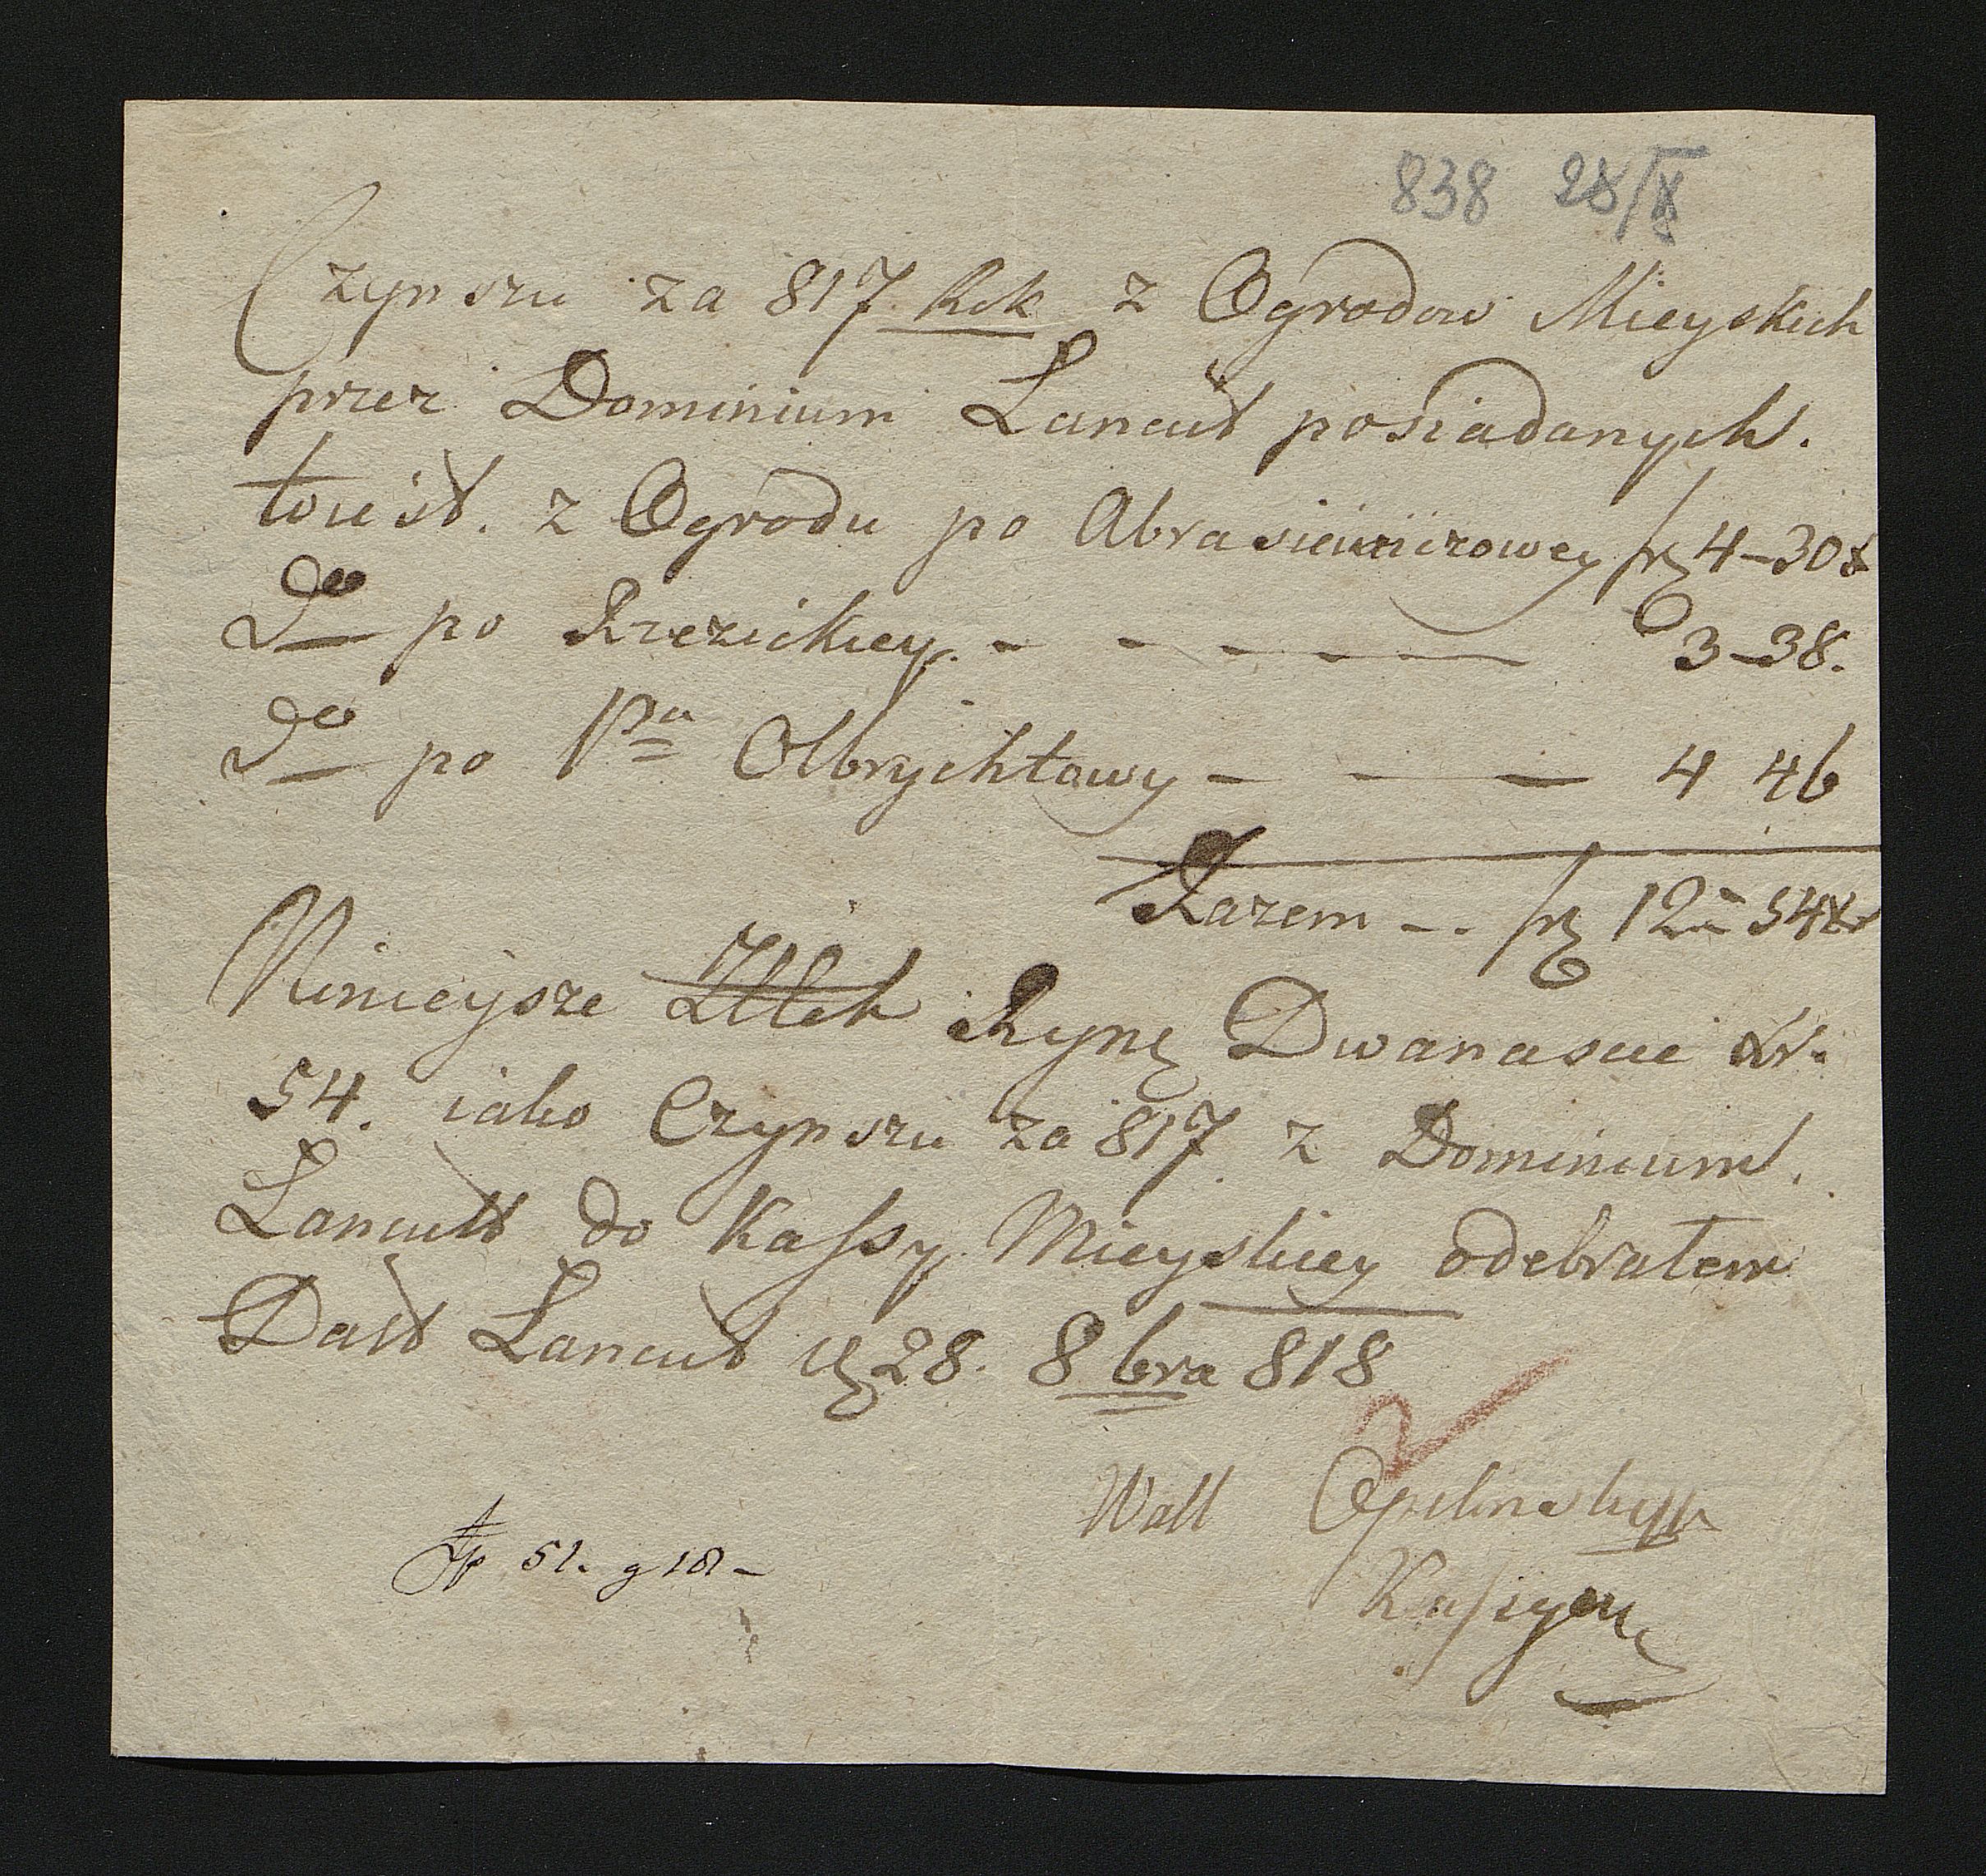 838 28/X
Czynszu za 817 Rok z Ogrodow Mieyskich
przez Dominium Lancut posiadanych.
to iest. z Ogrodu po 4-30x
Do po Rzezickiey - - - - 3-38.
Do po Pa Olbrychtowy - - - 4 46
Razem -- fr 12 - 54xr
Ninieysze Ryn Dwanascie Xr.
54. iako Czynszu za 817 z Dominium.
Lancutt do Kassy Mieyskiey odebrałem
Datt Lancut d 28. 8bra 818
Wall
Kassyer
Zp 51. g 18-